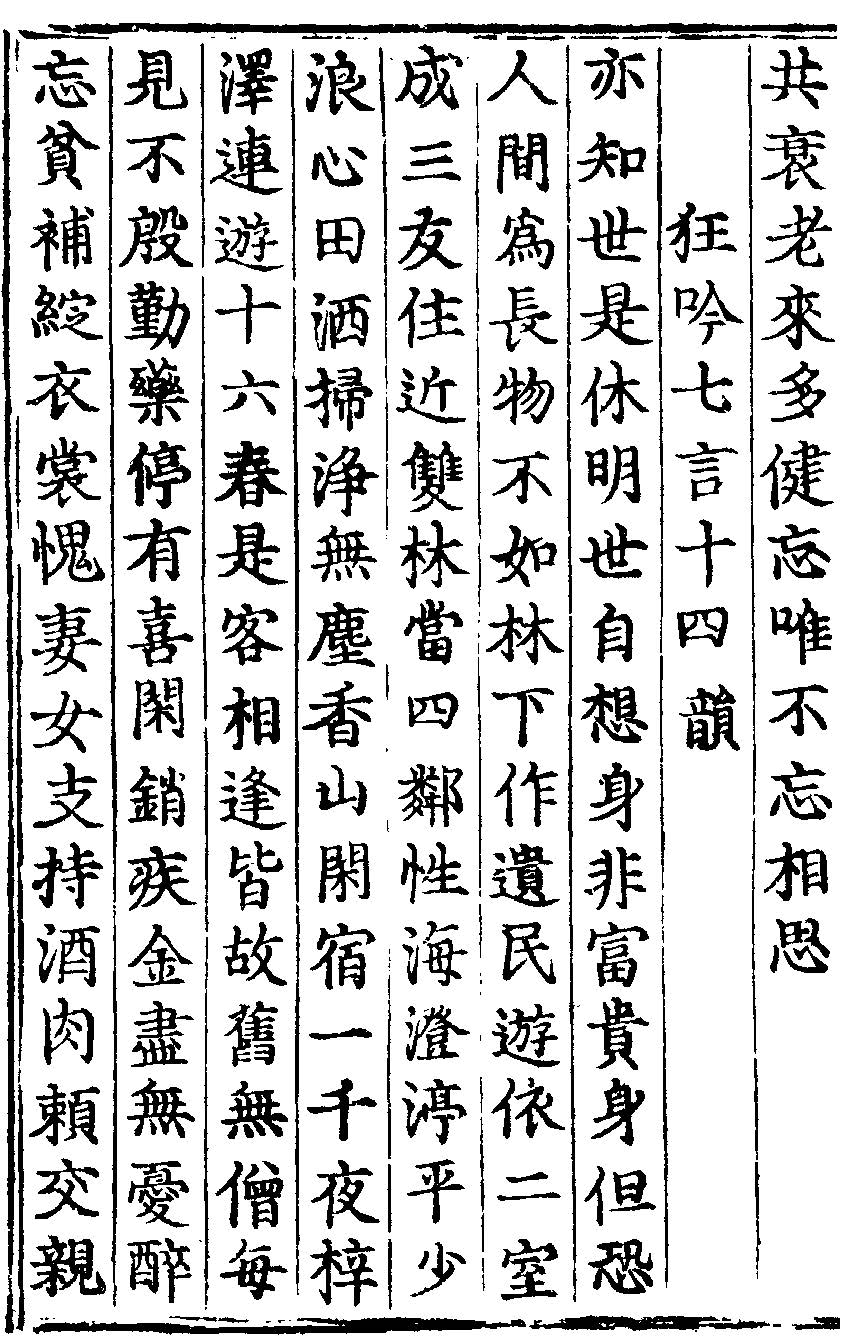 共衰老來多健忘唯不忘相思
狂吟七言十四韻
亦知世是休明世自想身非富貴身但恐
人間爲長物不如林下作遺民遊依二室
成三友住近雙林當四鄰性海澄渟平少
浪心田洒掃淨無塵香山閑宿一千夜梓
澤連遊十六春是客相逢皆故舊無僧每
見不殷勤藥停有喜閑銷疾金盡無憂醉
忘貧補綻衣裳愧妻女支持酒肉頼交親